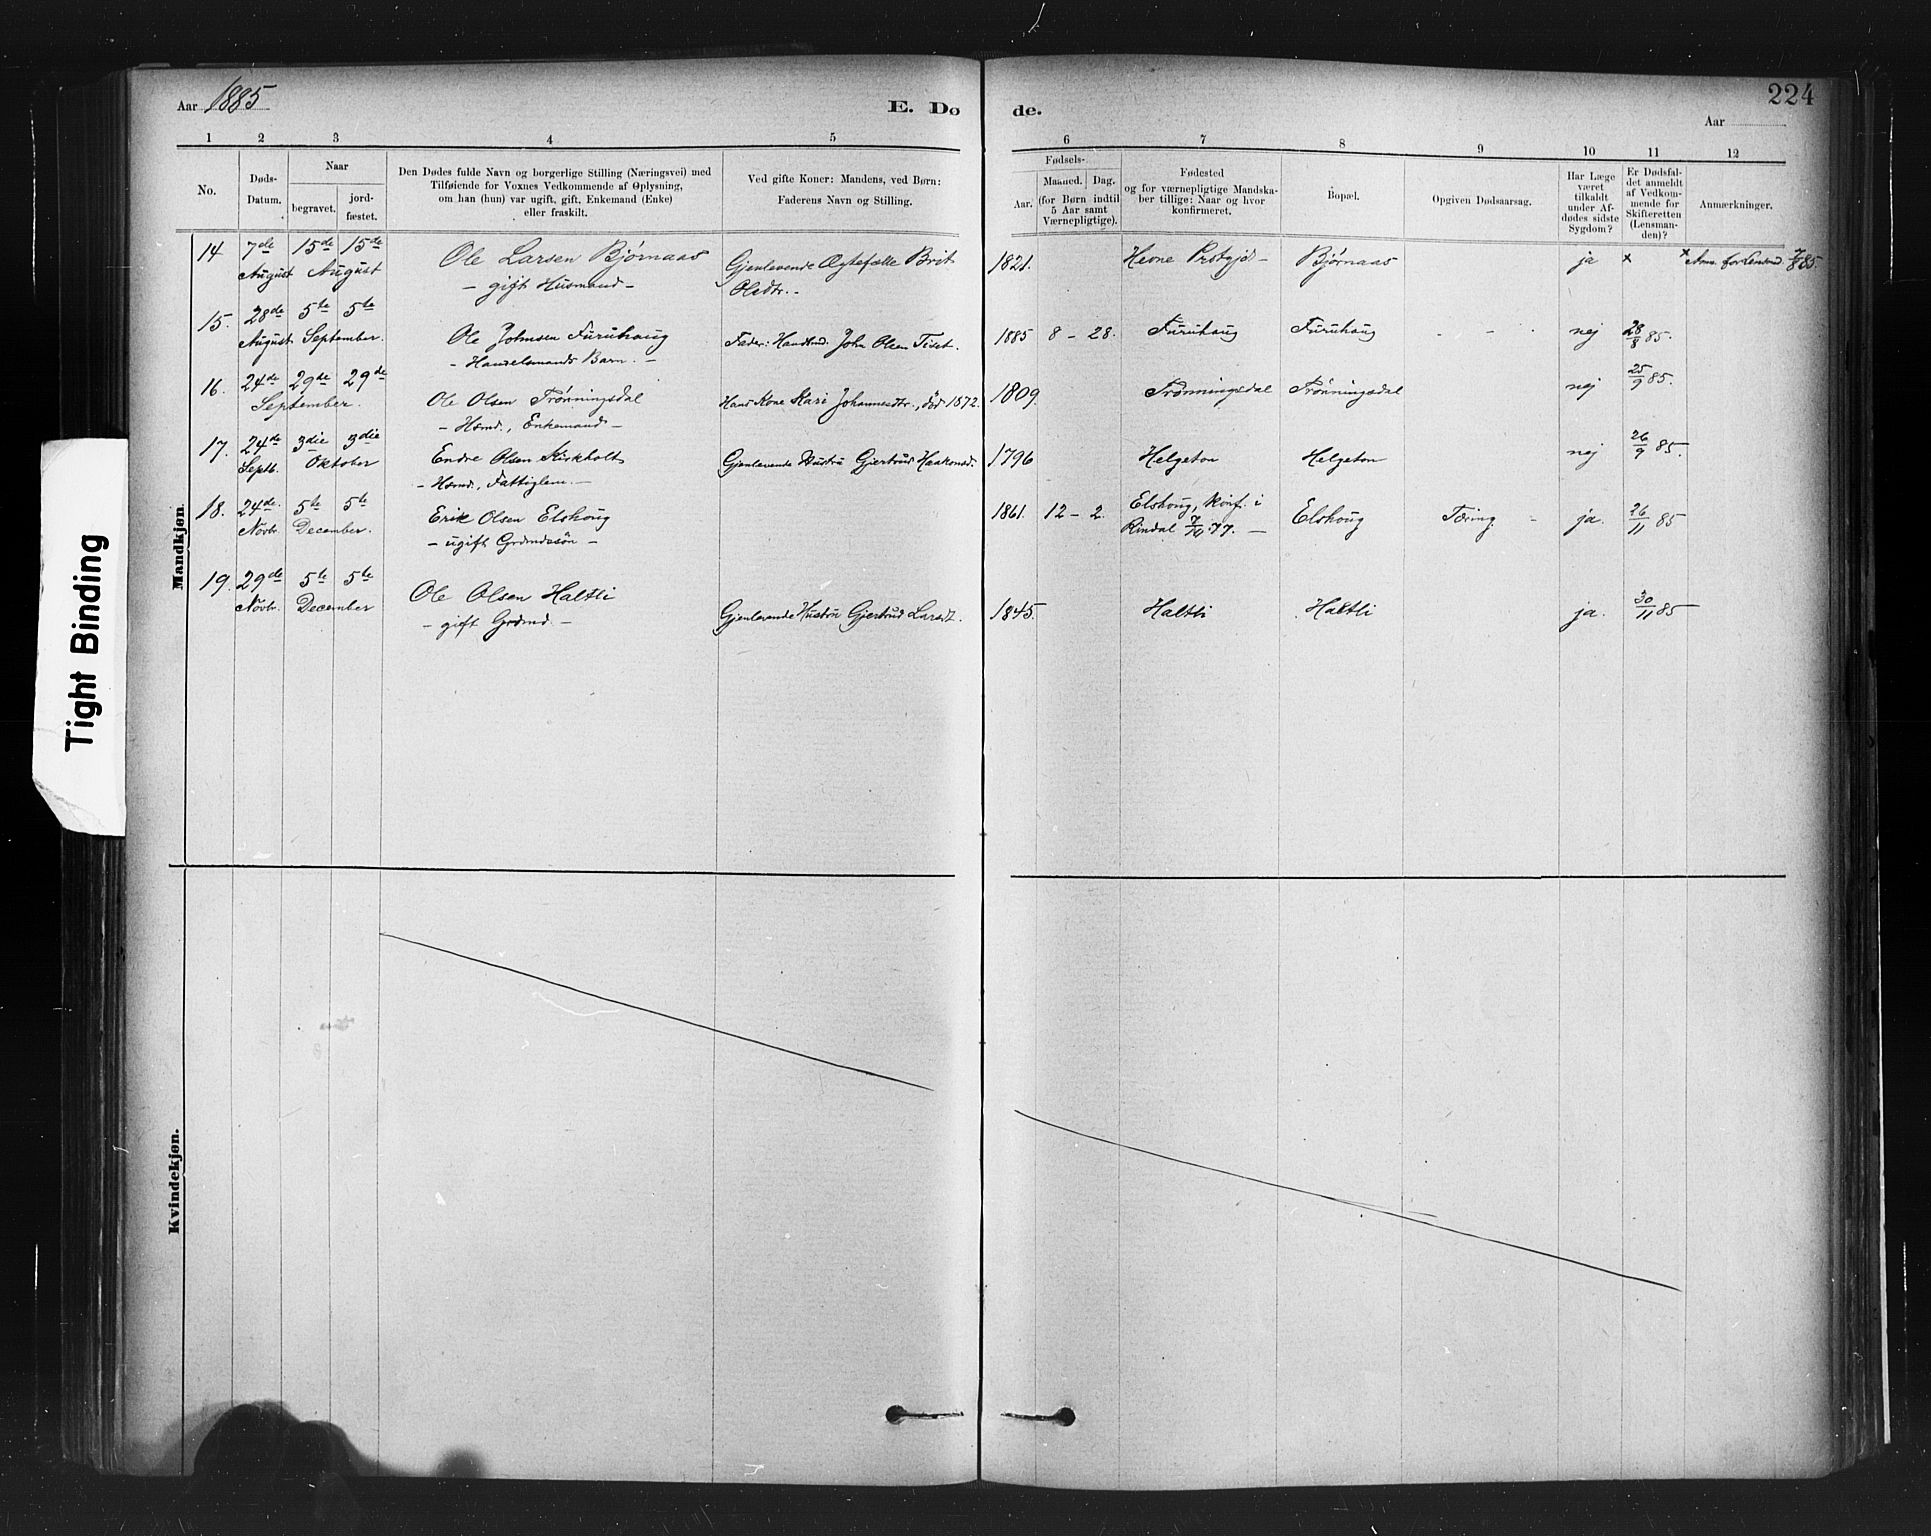 Aar 1885
E. Dø
de.
224
Aar
1 2 3 4 5 6 7 8 9 10 11 12
No.
Døds-
Datum.
Naar
begravet.
jord-
fæstet.
Den Dødes fulde Navn og borgerlige Stilling (Næringsvei) med
Tilføiende for Voxnes Vedkommende af Oplysning,
om han (hun) var ugift, gift, Enkemand (Enke)
eller fraskilt.
Ved gifte Koner: Mandens, ved Børn:
Faderens Navn og Stilling.
Fødsels-
Aar.
Maaned. Dag.
(for Børn indtil
5 Aar samt
Værnepligtige).
Fødested
og for værnepligtige Mandska-
ber tillige: Naar og hvor
konfirmeret.
Bopæl.
Opgiven Dødsaarsag.
Har Læge
været
tilkaldt
under Af-
dødes sidste
Sygdom?
Er Dødsfal-
det anmeldt
af Vedkom-
mende for
Skifteretten
(Lensman-
den)?
Anmærkninger.
Mandkjøn.
14 7de 15de 15de Ole Larsen Bjørnaas Gjenlevende Ægtefælle Brit 1821. Hevne Prstgjd - Bjørnaas ja x x Anm. for Lensmd. 7/8 85.
August August - gift Husmand - Olsdtr. -
15. 28de 5te 5te Ole Johnsen Furuhaug Fader: Handlmd. John Olsen Tiset. 1885 8 - 28. Furuhaug Furuhaug - - nej 28/8 85.
August September. - Handelsmands Barn. -
16. 24de 29de 29de Ole Olsen Trønningsdal Hans Kone Kari Johannesdtr., død 1872. 1809. Trønningsdal Trønningsdal nej 25/9 85.
September. - Hsmd., Enkemand -
17. 24de 3die 3die Endre Olsen Kirkholt Gjenlevende Hustru Gjertrud Haakonsd. 1796 Helgeton Helgeton nej 26/9 85.
Septb. Oktober - Hsmd., Fattiglem. -
18. 24de 5te 5te Erik Olsen Elshoug 1861. 12 - 2. Elshoug, konf. i Elshoug Tæring - ja. 26/11 85
Novbr. December. - ugift Grdmdssøn - Rindal 7/10 77. -
19. 29de 5te 5te Ole Olsen Haltli Gjenlevende Hustru Gjertrud Larsdt. 1845. Haltli Haltli ja. 30/11 85
Novbr. December - gift Grdmd. -
Kvindekjøn.
Tight Binding